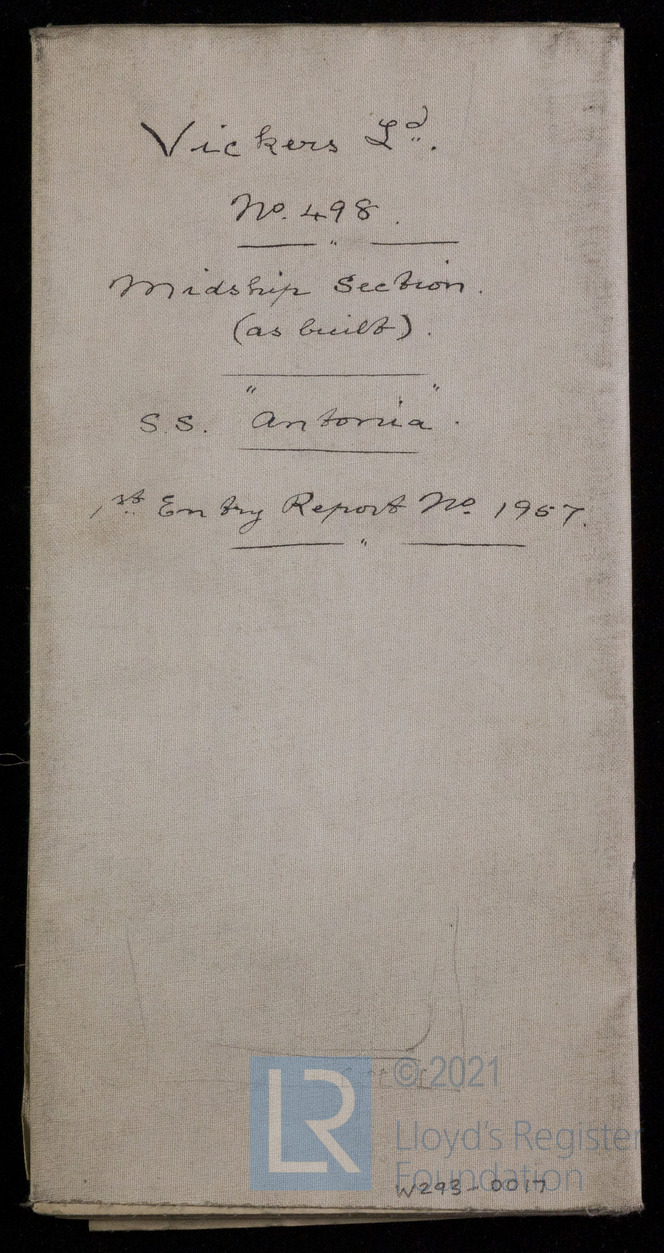 Vickers Ld.
No. 498.
Midship Section.
(as built).
S.S. "Antonia".
1st Entry Report No. 1957.
LR
©2021
Lloyd's Register
Foundation
W293-0017